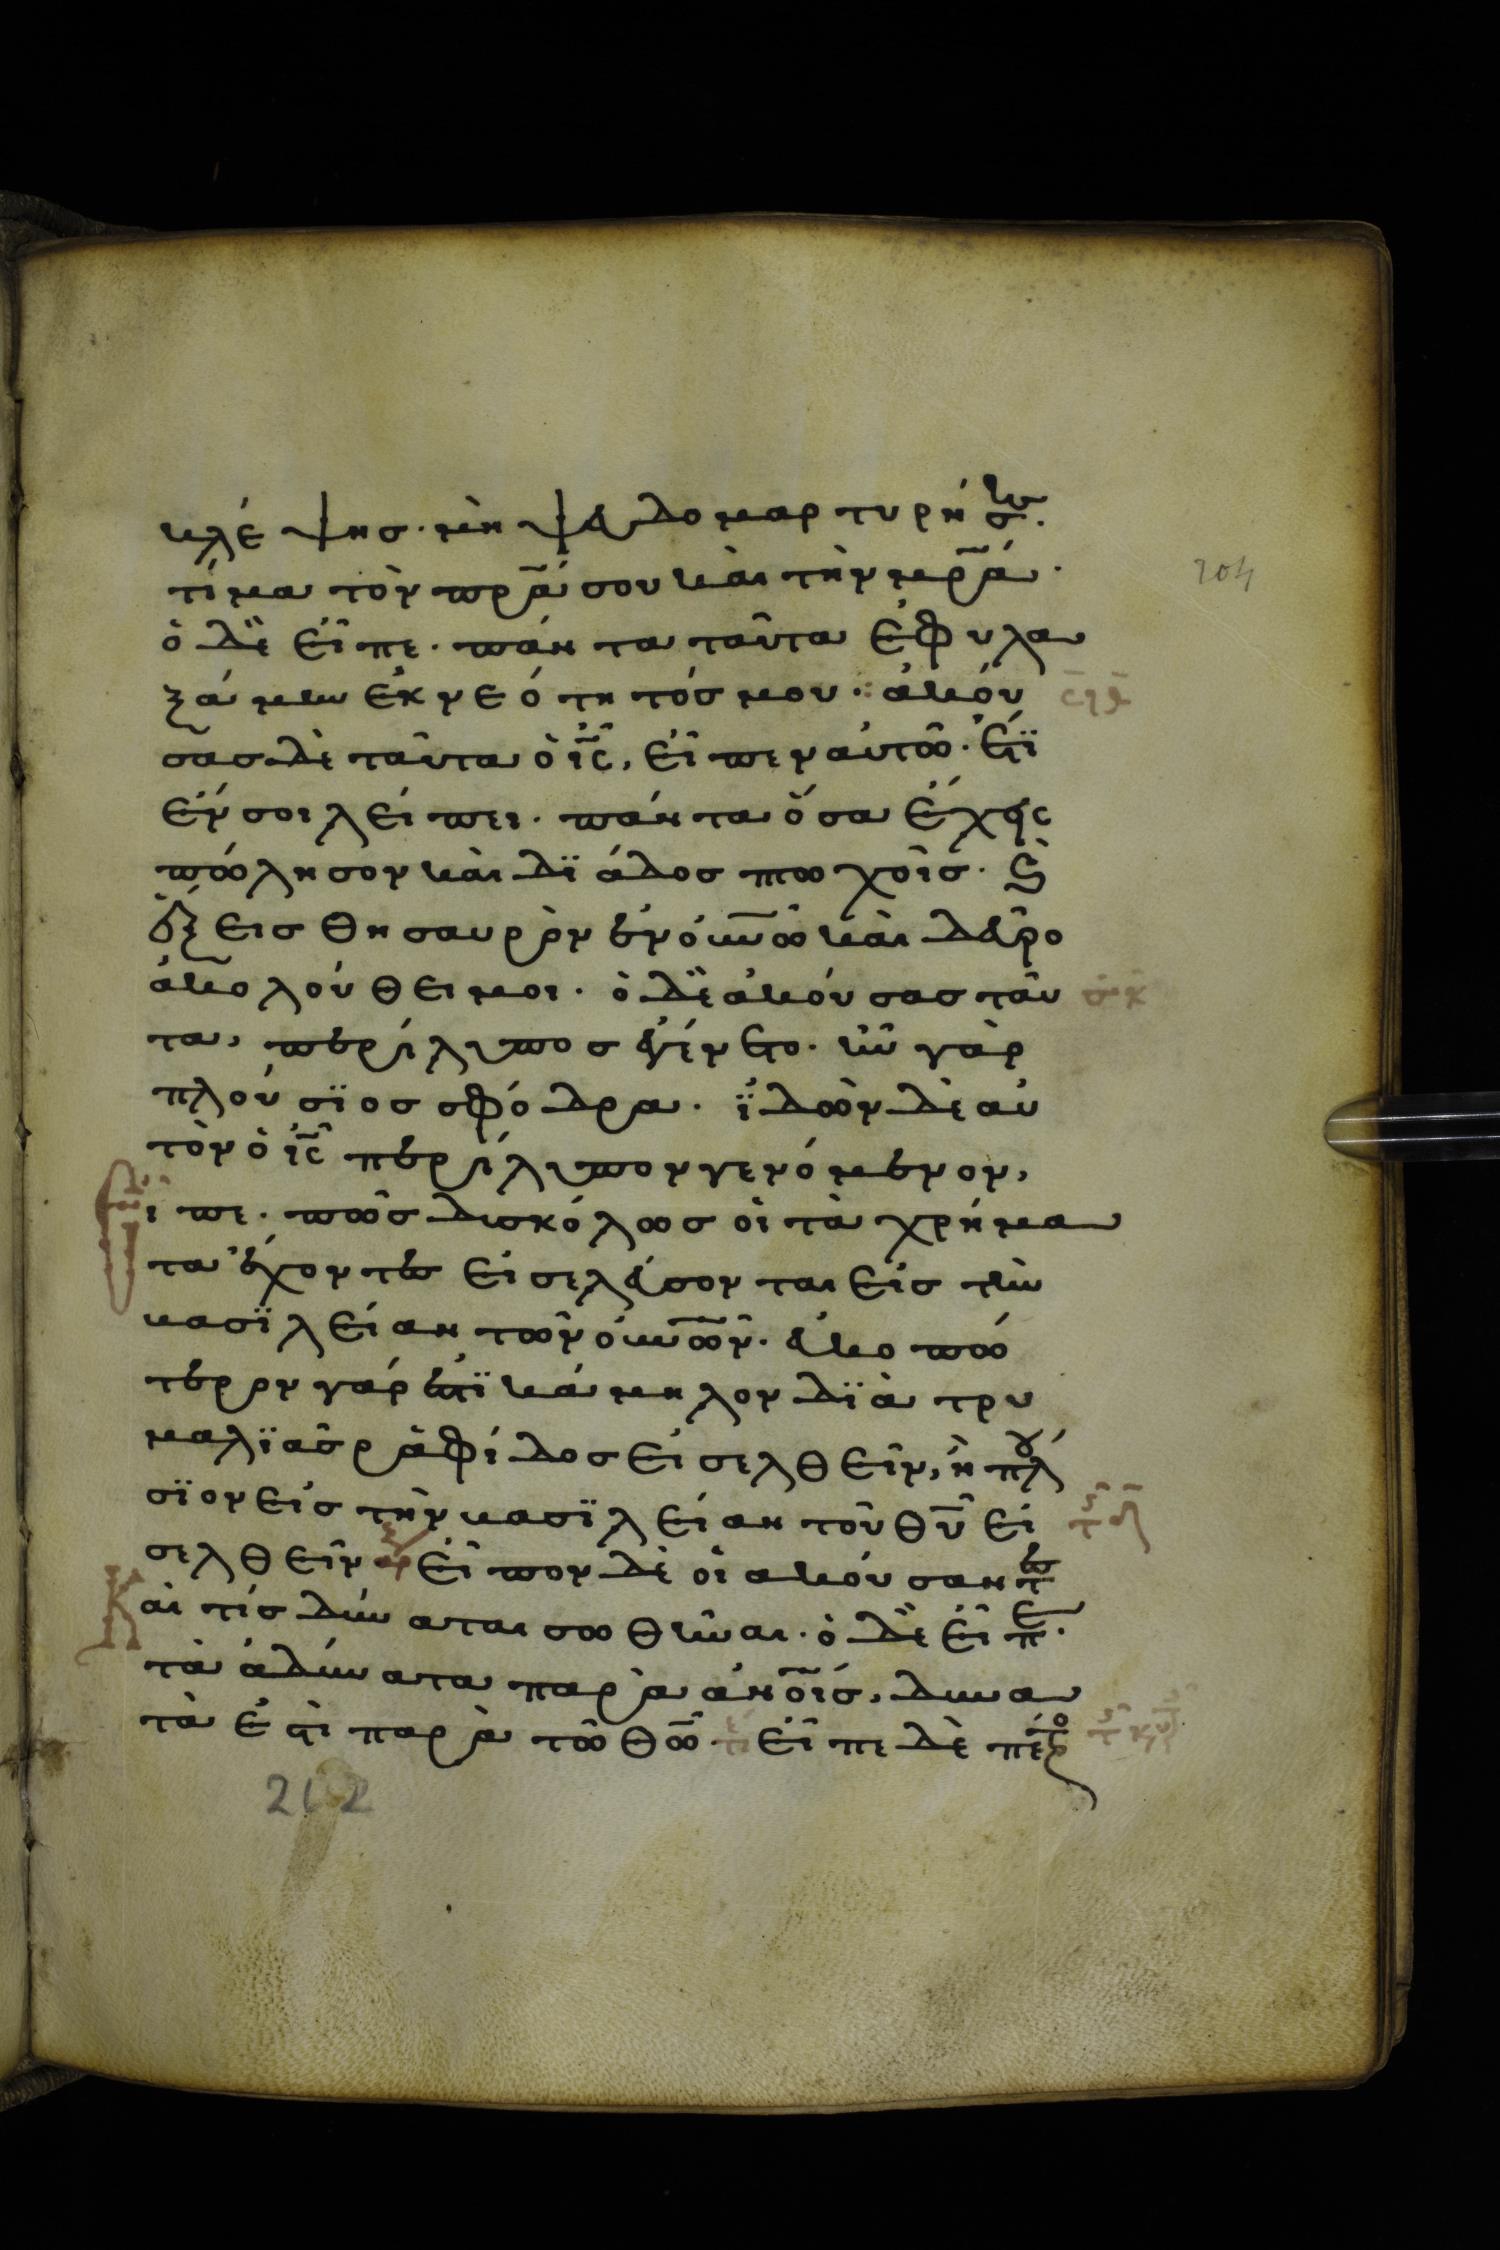 κλέψησ· μὴ ψευδομαρτυρήσησ·
τίμα τὸν πρ̅ά σου καὶ τὴν μρ̅ά·
ὁ δὲ εἶπε· πάντα ταῦτα ἐφυλα
ξάμην ἐκ νεότητόσ μου· ἀκού
σασ δὲ ταῦτα ὁ ι̅ς̅, εἶπεν αὐτῶ· ἔτϊ
ἕν σοι λείπει· πάντα ὅσα ἔχεις
πώλησον καὶ δϊάδοσ πτωχοῖσ· κ(αὶ)
ἕξεισ θησαυρὸν ἐν ο̅υ̅ν̅ω̅ καὶ δεῦρο
ἀκολούθει μοι· ὁ δὲ ἀκούσασ ταῦ
τα, περίλυποσ ἐγένετο· ἦν γὰρ
πλούσϊοσ σφόδρα· ϊδὼν δὲ αὐ
τὸν ὁ ι̅ς̅ περίλυπον γενόμενον,
εἶπε· πῶσ δυσκόλωσ οἱ τὰ χρήμα
τα ἔχοντεσ εἰσελεύσονται εἰσ τὴν
βασϊλείαν τῶν ο̅υ̅ν̅ω̅ν· εὐκοπώ
τερον γάρ ἐστϊ κάμηλον δϊὰ τρυ
μαλϊᾶσ ραφίδοσ εἰσελθεῖν, ἢ πλού
σϊον εἰσ τὴν βασϊλείαν τοῦ θ̅υ̅ εἰ
σελθεῖν εἶπον δὲ οἱ ἀκούσαντεσ
Καὶ τίσ δύναται σωθῆναι· ὁ δὲ εἶπε·
τὰ ἀδύνατα παρὰ α̅ν̅ο̅ι̅σ̅, δυνα
τὰ ἐστὶ παρὰ τῶ θ̅ω̅· εἶπε δὲ πέτρος
204
202